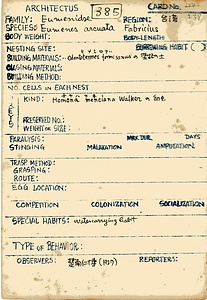 ARCHITECTUS
385
CARD NO.
FAMILY: Eumenidae
REGION:
SPECIES: Eumenes arcuata Fabricius
BODY WEIGHT:
BODY LENGTH:
NESTING SITE:
BURROWING HABIT ( )
BUILDING MATERIALS:
CLOSING MATERIALS:
BUILDING METHOD:
NO. CELLS IN EACH NEST
KIND: Homona menciana Walker
PRESERVED NO.:
WEIGHT OR SIZE:
PARALYSIS:
DAYS
STINGING
MALAXATION
AMPUTATION
TRASP METHOD:
GRASPING:
ROUTE:
EGG LOCATION:
COMPETITION
COLONIZATION
SOCIALIZATION
SPECIAL HABITS: water carrying habit
TYPE OF BEHAVIOR:
OBSERVERS:
REPORTERS: